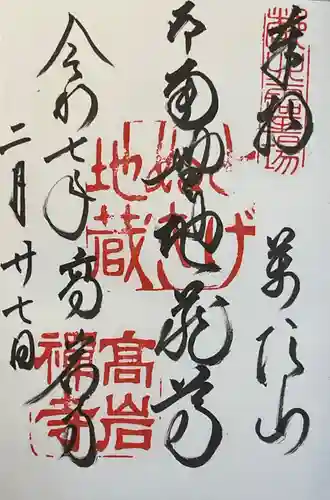 奉拝
萬頂山
地蔵尊
令和七年 高岩寺
二月廿七日
とげぬき地蔵
高岩禅寺